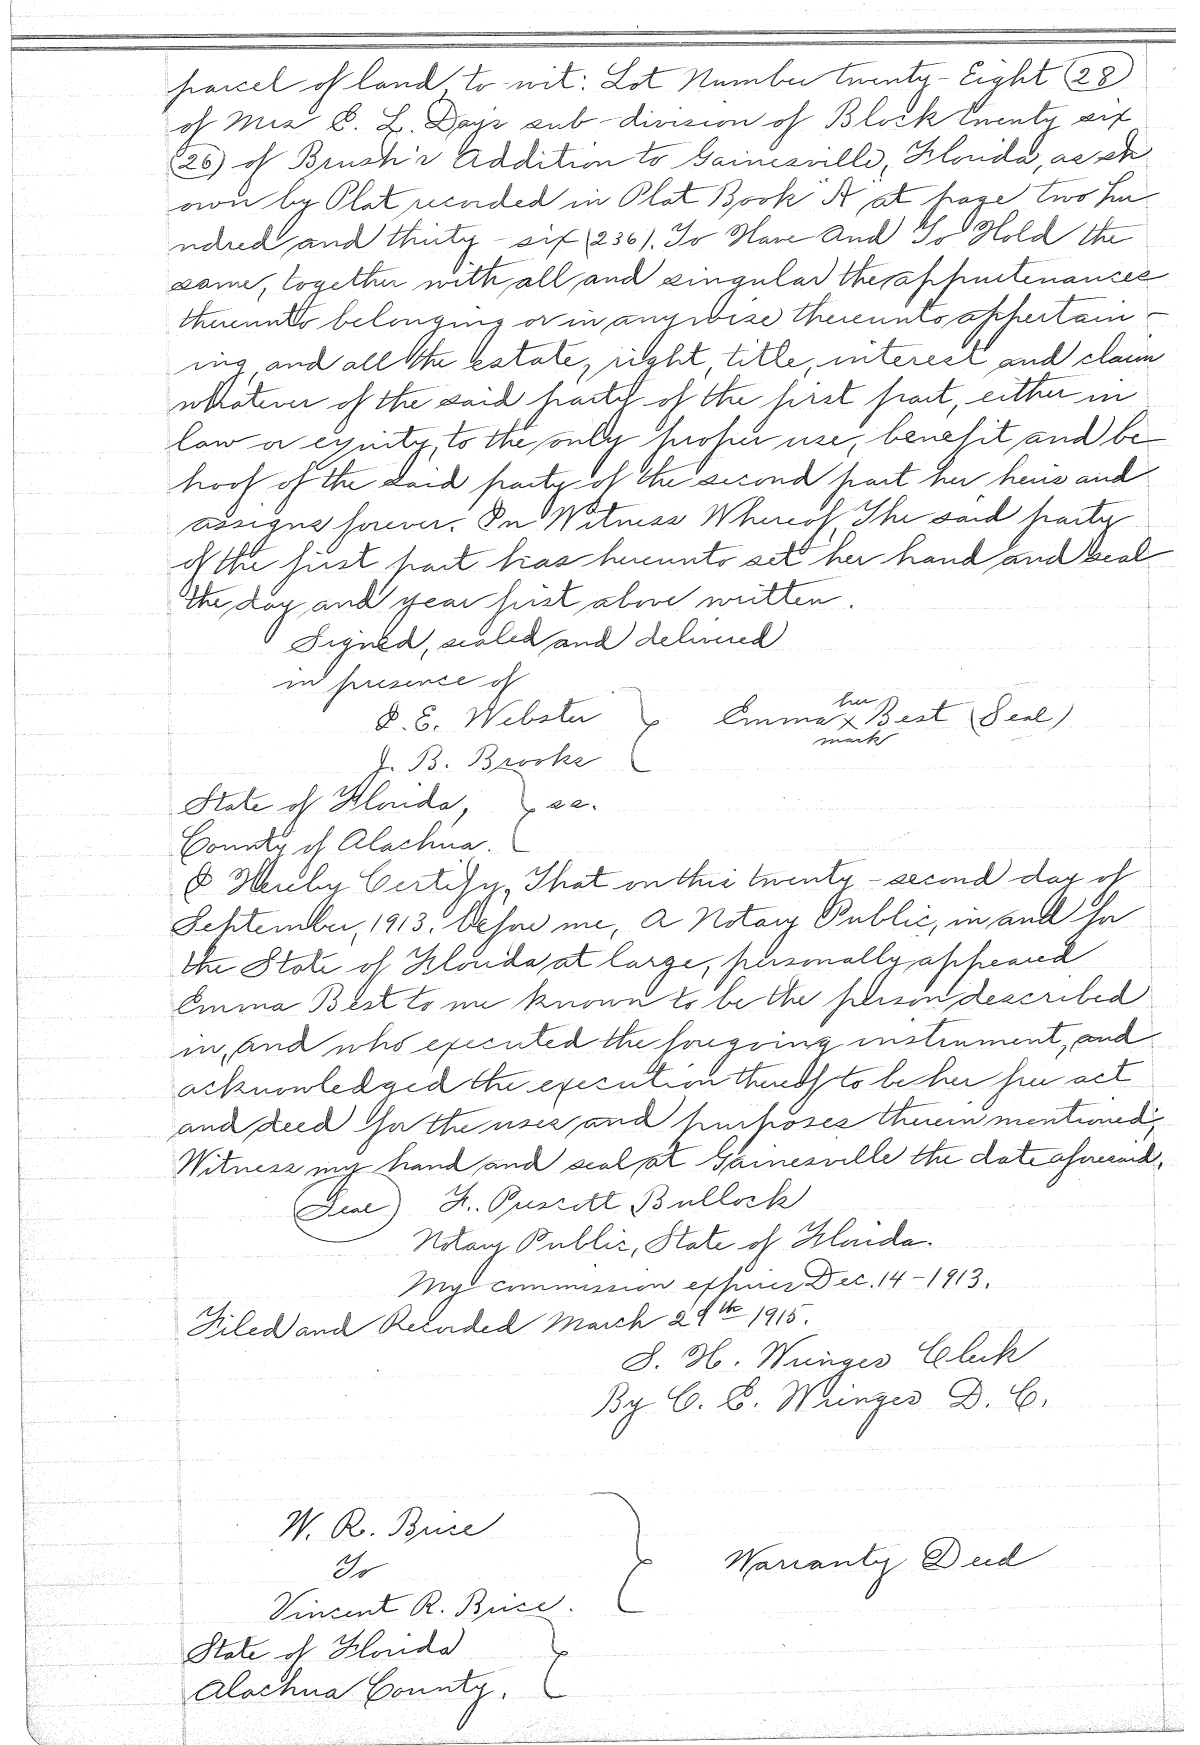 parcel of land, to wit: Lot Number twenty-Eight (28)
of Mrs E. L. Days sub-division of Block twenty six
(26) of Brush's Addition to Gainesville, Florida, as sh
own by Plat recorded in Plat Book "A" at page two hu
ndred and thirty-six (236). To Have And To Hold the
same, together with all and singular the appurtenances
thereunto belonging or in anywise thereunto appertain-
ing, and all the estate, right, title, interest and claim
whatever of the said party of the first part, either in
law or equity, to the only proper use, benefit and be
hoof of the said party of the second part her heirs and
assigns forever. In Witness Whereof, The said party
of the first part has hereunto set her hand and seal
the day and year first above written.
Signed, sealed and delivered
in presence of
E. Webster } Emma her x mark Best (Seal)
J. B. Brooks
State of Florida, } ss.
County of Alachua.
I Hereby Certify, That on this twenty-second day of
September, 1913. before me, A Notary Public, in and for
the State of Florida at large, personally appeared
Emma Best to me known to be the person described
in, and who executed the foregoing instrument, and
acknowledged the execution thereof to be her free act
and deed for the uses and purposes therein mentioned;
Witness my hand and seal at Gainesville the date aforesaid.
(Seal) F. Prescott Bullock
Notary Public, State of Florida.
My commission expires Dec. 14-1913.
Filed and Recorded March 29th 1915.
S. H. Wienges Clerk
By C. E. Wienges D. C.
W. R. Brice
To } Warranty Deed
Vincent R. Brice.
State of Florida }
Alachua County.